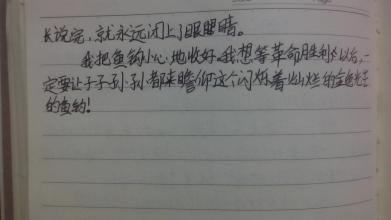 长说完,就永远闭上了眼睛。
我把鱼钩小心地收好。我想等革命胜利以后,一
定要让子子孙孙都来瞻仰这个闪烁着灿烂的金色光芒
的鱼钩!